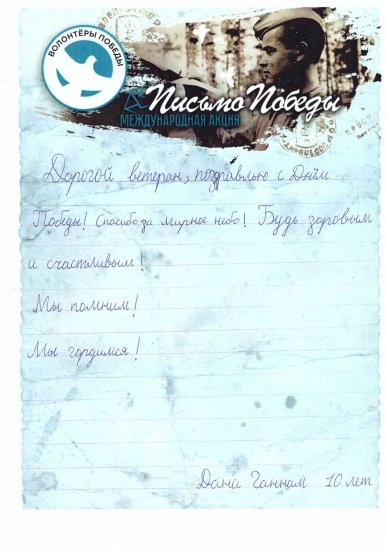 ВОЛОНТЁРЫ ПОБЕДЫ
Письмо Победы
МЕЖДУНАРОДНАЯ АКЦИЯ
Дорогой ветеран, поздравлю с Днём
Победы! Спасибо за мирное небо! Будь здоровым
и счастливым!
Мы помним!
Мы гордимся!
Дана Ганнам 10 лет